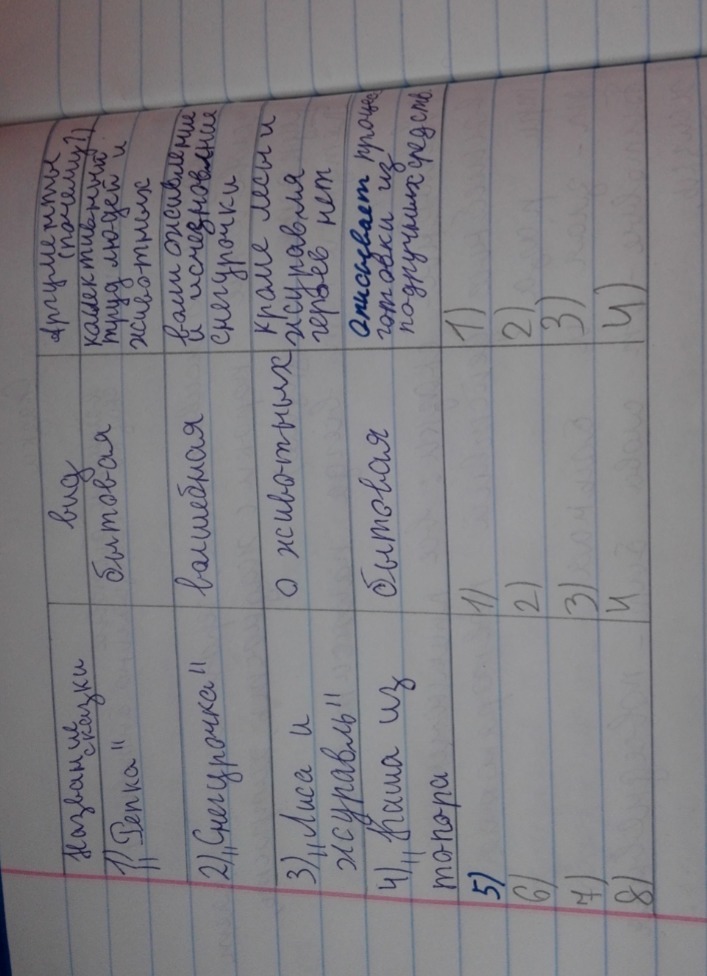 Название сказки
вид
Аргументы (почему?)
1) "Репка"
бытовая
калективный
труд людей и
животных
2) "Снегурочка"
валшебная
ваш оживление
и исчезновение
снегурочки
3) "Лиса и
журавль"
о животных
кроме лисы и
журавля
героев нет
4) "Каша из
топора
бытовая
описывает процес
готовки из
подручних средств
5)
1)
1)
6)
2)
2)
7)
3)
3)
8)
4
4)